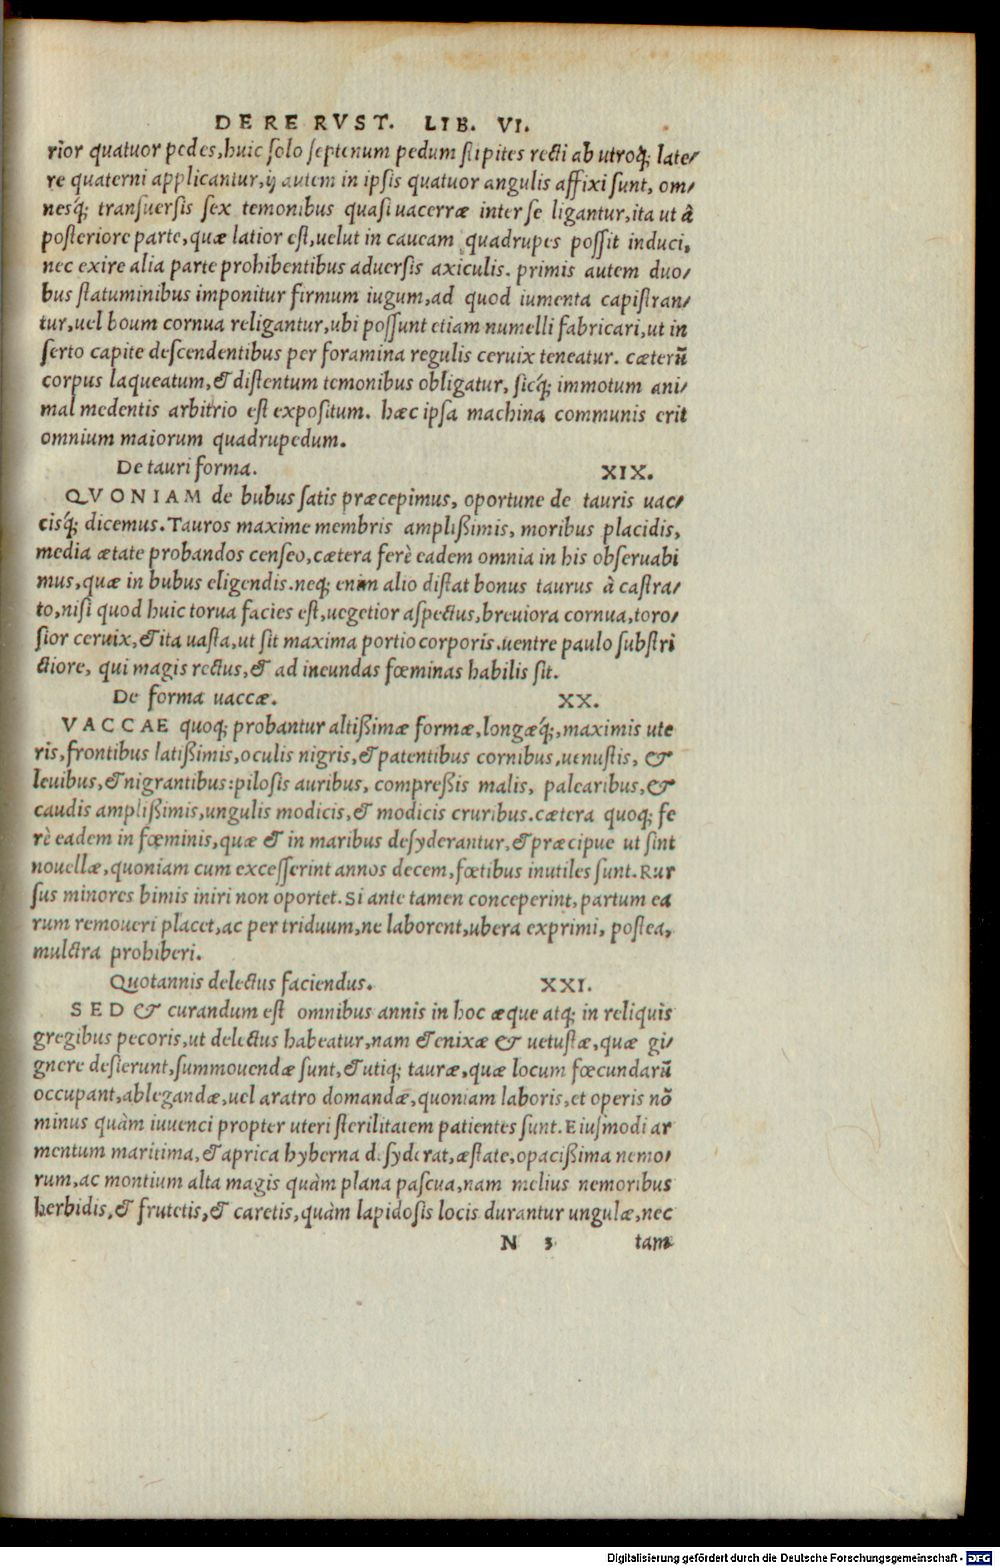 DE RE RVST. LIB. VI.
rior quatuor pedes, huic solo septenum pedum stipites recti ab utroq; late/
re quaterni applicantur, ij autem in ipsis quatuor angulis affixi sunt, om/
nesq́; transuersis sex temonibus quasi uacerræ inter se ligantur, ita ut à
posteriore parte, quæ latior est, uelut in caueam quadrupes possit induci,
nec exire alia parte prohibentibus aduersis axiculis. primis autem duo/
bus statuminibus imponitur firmum iugum, ad quod iumenta capistran/
tur, uel boum cornua religantur, ubi possunt etiam numelli fabricari, ut in
serto capite descendentibus per foramina regulis ceruix teneatur. cæterū
corpus laqueatum, & distentum temonibus obligatur, sicq́; immotum ani/
mal medentis arbitrio est expositum. hæc ipsa machina communis erit
omnium maiorum quadrupedum.
De tauri forma. XIX.
QVONIAM de bubus satis præcepimus, oportune de tauris uac/
cisq́; dicemus. Tauros maxime membris amplißimis, moribus placidis,
media ætate probandos censeo, cætera ferè eadem omnia in his obseruabi
mus, quæ in bubus eligendis. neq; enim alio distat bonus taurus à castra/
to, nisi quod huic torua facies est, uegetior aspectus, breuiora cornua, toro/
sior ceruix, & ita uasta, ut sit maxima portio corporis. uentre paulo substri
ctiore, qui magis rectus, & ad ineundas fœminas habilis sit.
De forma uaccæ. XX.
VACCAE quoq; probantur altißimæ formæ, longæq́;, maximis ute
ris, frontibus latißimis, oculis nigris, & patentibus cornibus, uenustis, &
leuibus, & nigrantibus: pilosis auribus, compreßis malis, palearibus, &
caudis amplißimis, ungulis modicis, & modicis cruribus. cætera quoq; fe
rè eadem in fœminis, quæ & in maribus desyderantur, & præcipue ut sint
nouellæ, quoniam cum excesserint annos decem, fœtibus inutiles sunt. Rur
sus minores bimis iniri non oportet. Si ante tamen conceperint, partum ea
rum remoueri placet, ac per triduum, ne laborent, ubera exprimi, postea,
mulctra prohiberi.
Quotannis delectus faciendus. XXI.
SED & curandum est omnibus annis in hoc æque atq; in reliquis
gregibus pecoris, ut delectus habeatur, nam & enixæ & uetustæ, quæ gi/
gnere desierunt, summouendæ sunt, & utiq; tauræ, quæ locum fœcundarū
occupant, ablegandæ, uel aratro domandæ, quoniam laboris, et operis nō
minus quàm iuuenci propter uteri sterilitatem patientes sunt. Eiusmodi ar
mentum maritima, & aprica hyberna desyderat, æstate, opacißima nemo/
rum, ac montium alta magis quàm plana pascua, nam melius nemoribus
herbidis, & frutetis, & caretis, quàm lapidosis locis durantur ungulæ, nec
N 3 tam
Digitalisierung gefördert durch die Deutsche Forschungsgemeinschaft - DFG